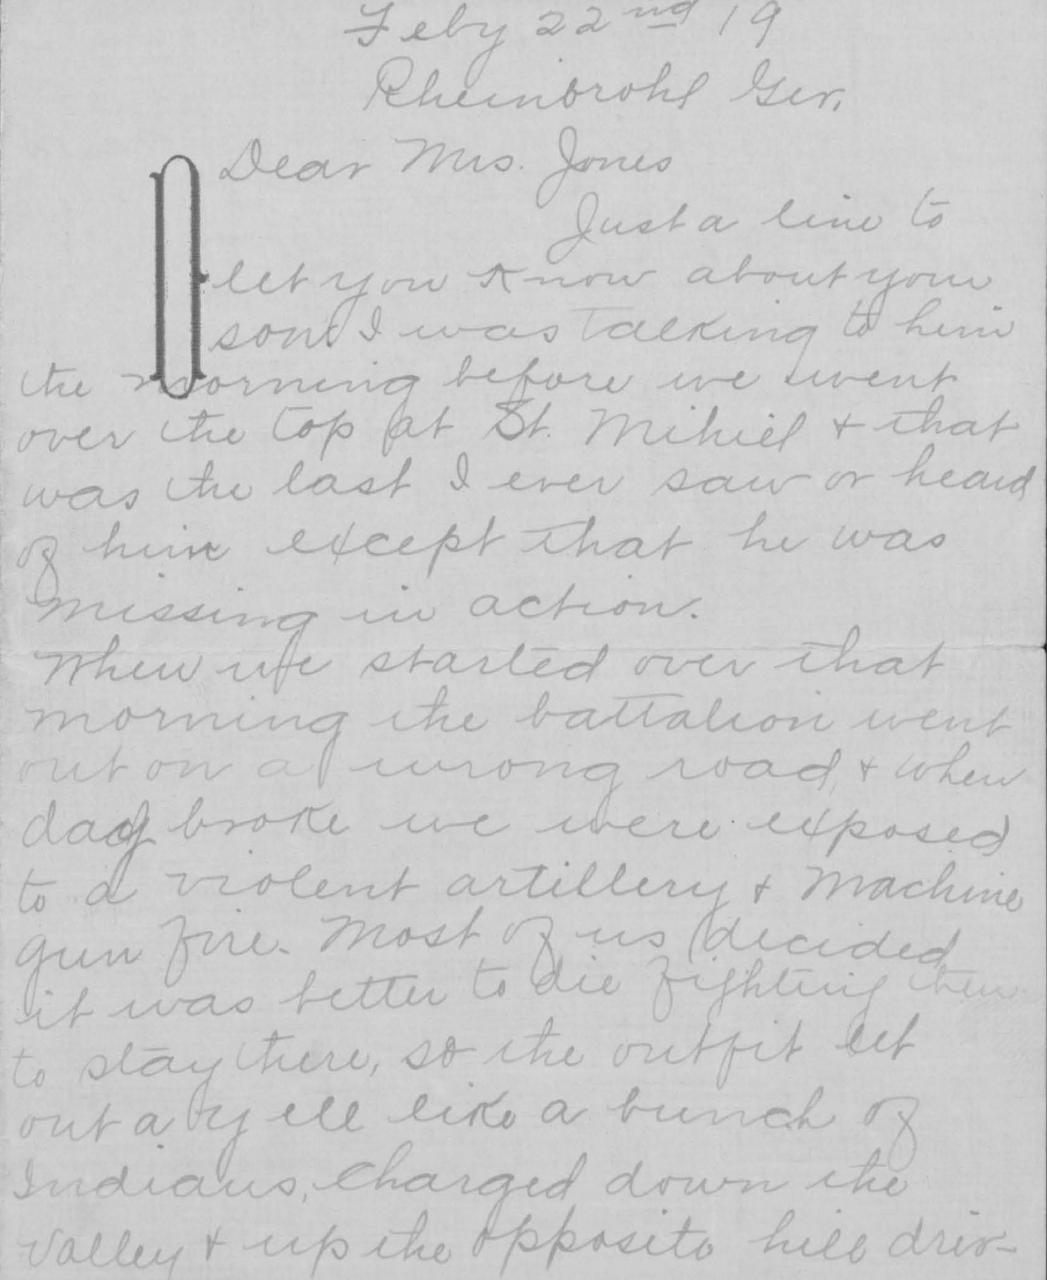 Feby 22nd 19
Rheinbrohl Ger.
Dear Mrs. Jones
Just a line to
let you know about your
son I was talking to him
the morning before we went
over the top at St. Mihiel + that
was the last I ever saw or heard
of him except that he was
missing in action.
When we started over that
morning the battalion went
out on a wrong road, + when
day broke we were exposed
to a violent artillery + machine
gun fire. Most of us decided
it was better to die fighting then
to stay there, so the outfit let
out a yell like a bunch of
Indians, charged down the
valley + up the opposite hill driv-